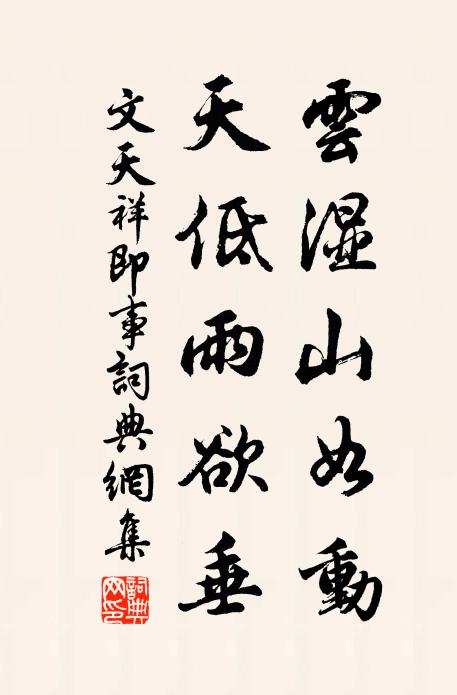 雲湿山如動
天低雨欲垂
文天祥即事詞典網集
詞典網印